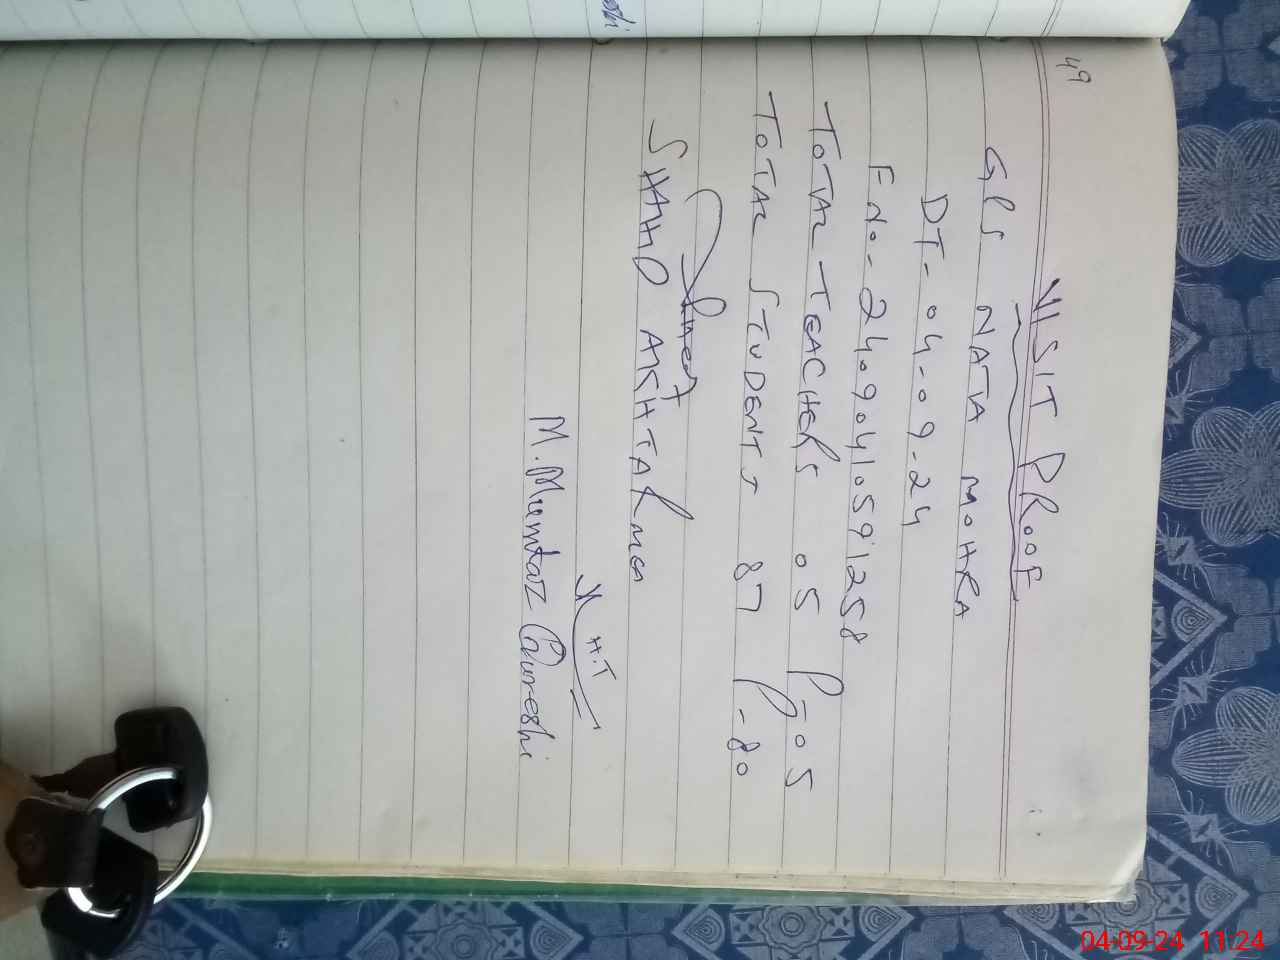 49
VISIT PROOF
GPS NATA MOHRA
DT- 04-09-24
F No- 240904105912 58
TOTAL TEACHERS 05 P-05
TOTAL STUDENTS 87 P-80
SHAHID AKHTAR
H.T
M. Mumtaz Qureshi
04-09-24 11:24